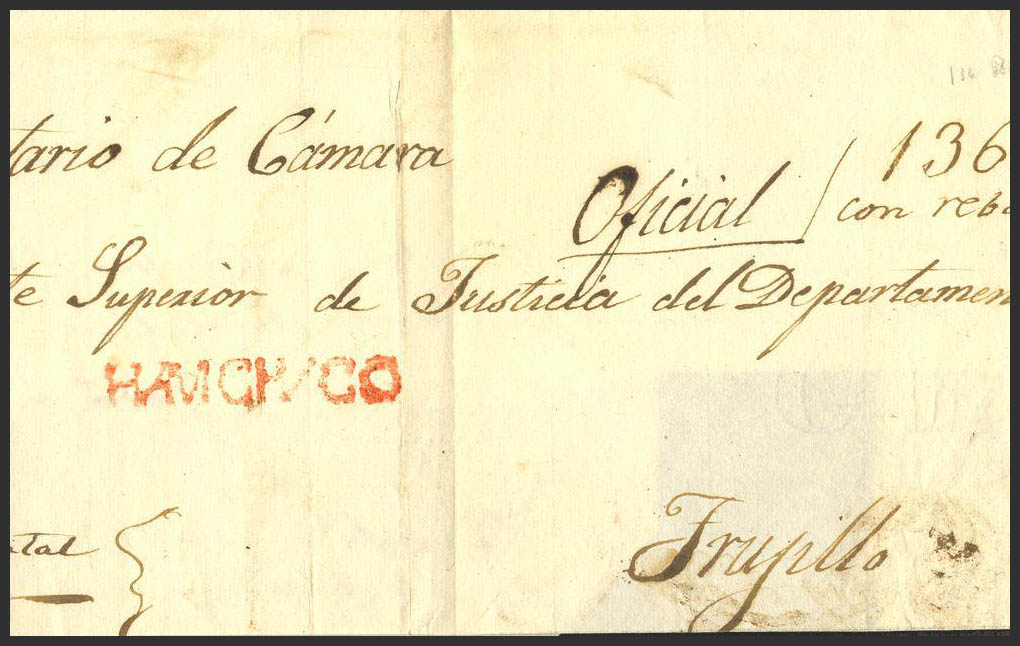 136
tario de Cámara
136
Oficial
con reb
te Superior de Justicia del Departamen
HAMCHACO
tal
Trujillo